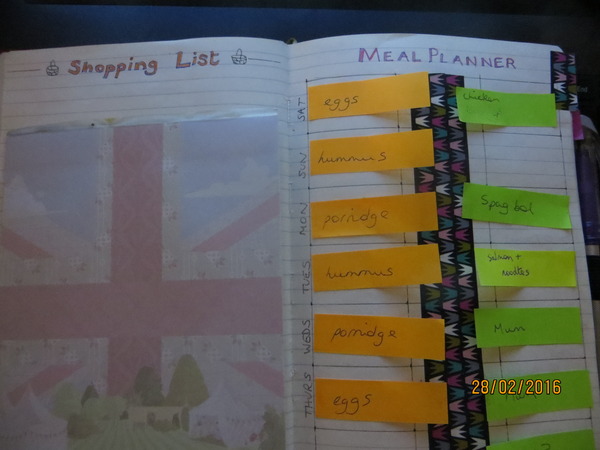 Shopping List
MEAL PLANNER
SAT
eggs
chicken
+
SUN
hummus
MON
porridge
Spag bol
TUES
hummus
Salmon +
noodles
WEDS
porridge
Mum
THURS
eggs
28/02/2016
?